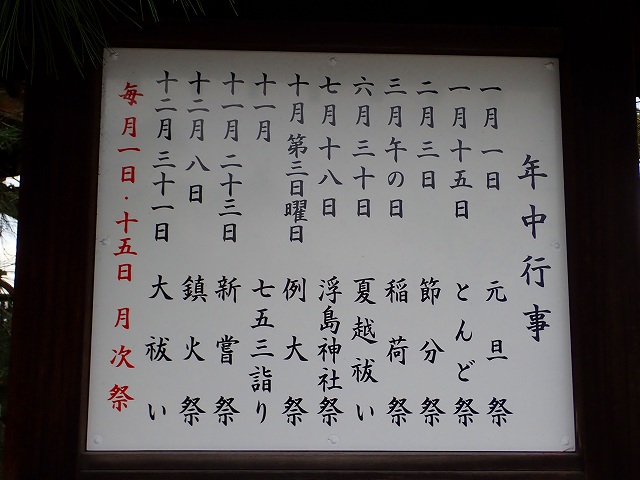 年中行事
一月一日 元旦祭
一月十五日 とんど祭
二月三日 節分祭
三月午の日 稲荷祭
六月三十日 夏越祓い
七月十八日 浮島神社祭
十月第三日曜日 例大祭
十一月 七五三詣り
十一月二十三日 新嘗祭
十二月八日 鎮火祭
十二月三十一日 大祓い
毎月一日・十五日 月次祭